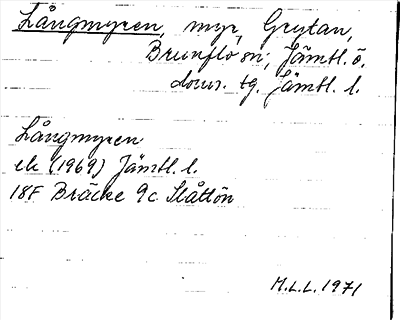 Långmyren, myr, Grytan,
Brunflo sn, Jämtl. ö.
doms. tg. Jämtl. l.
Långmyren
ek (1969) Jämtl. l.
18F Bräcke 9c Slåttön
M.L.L. 1971